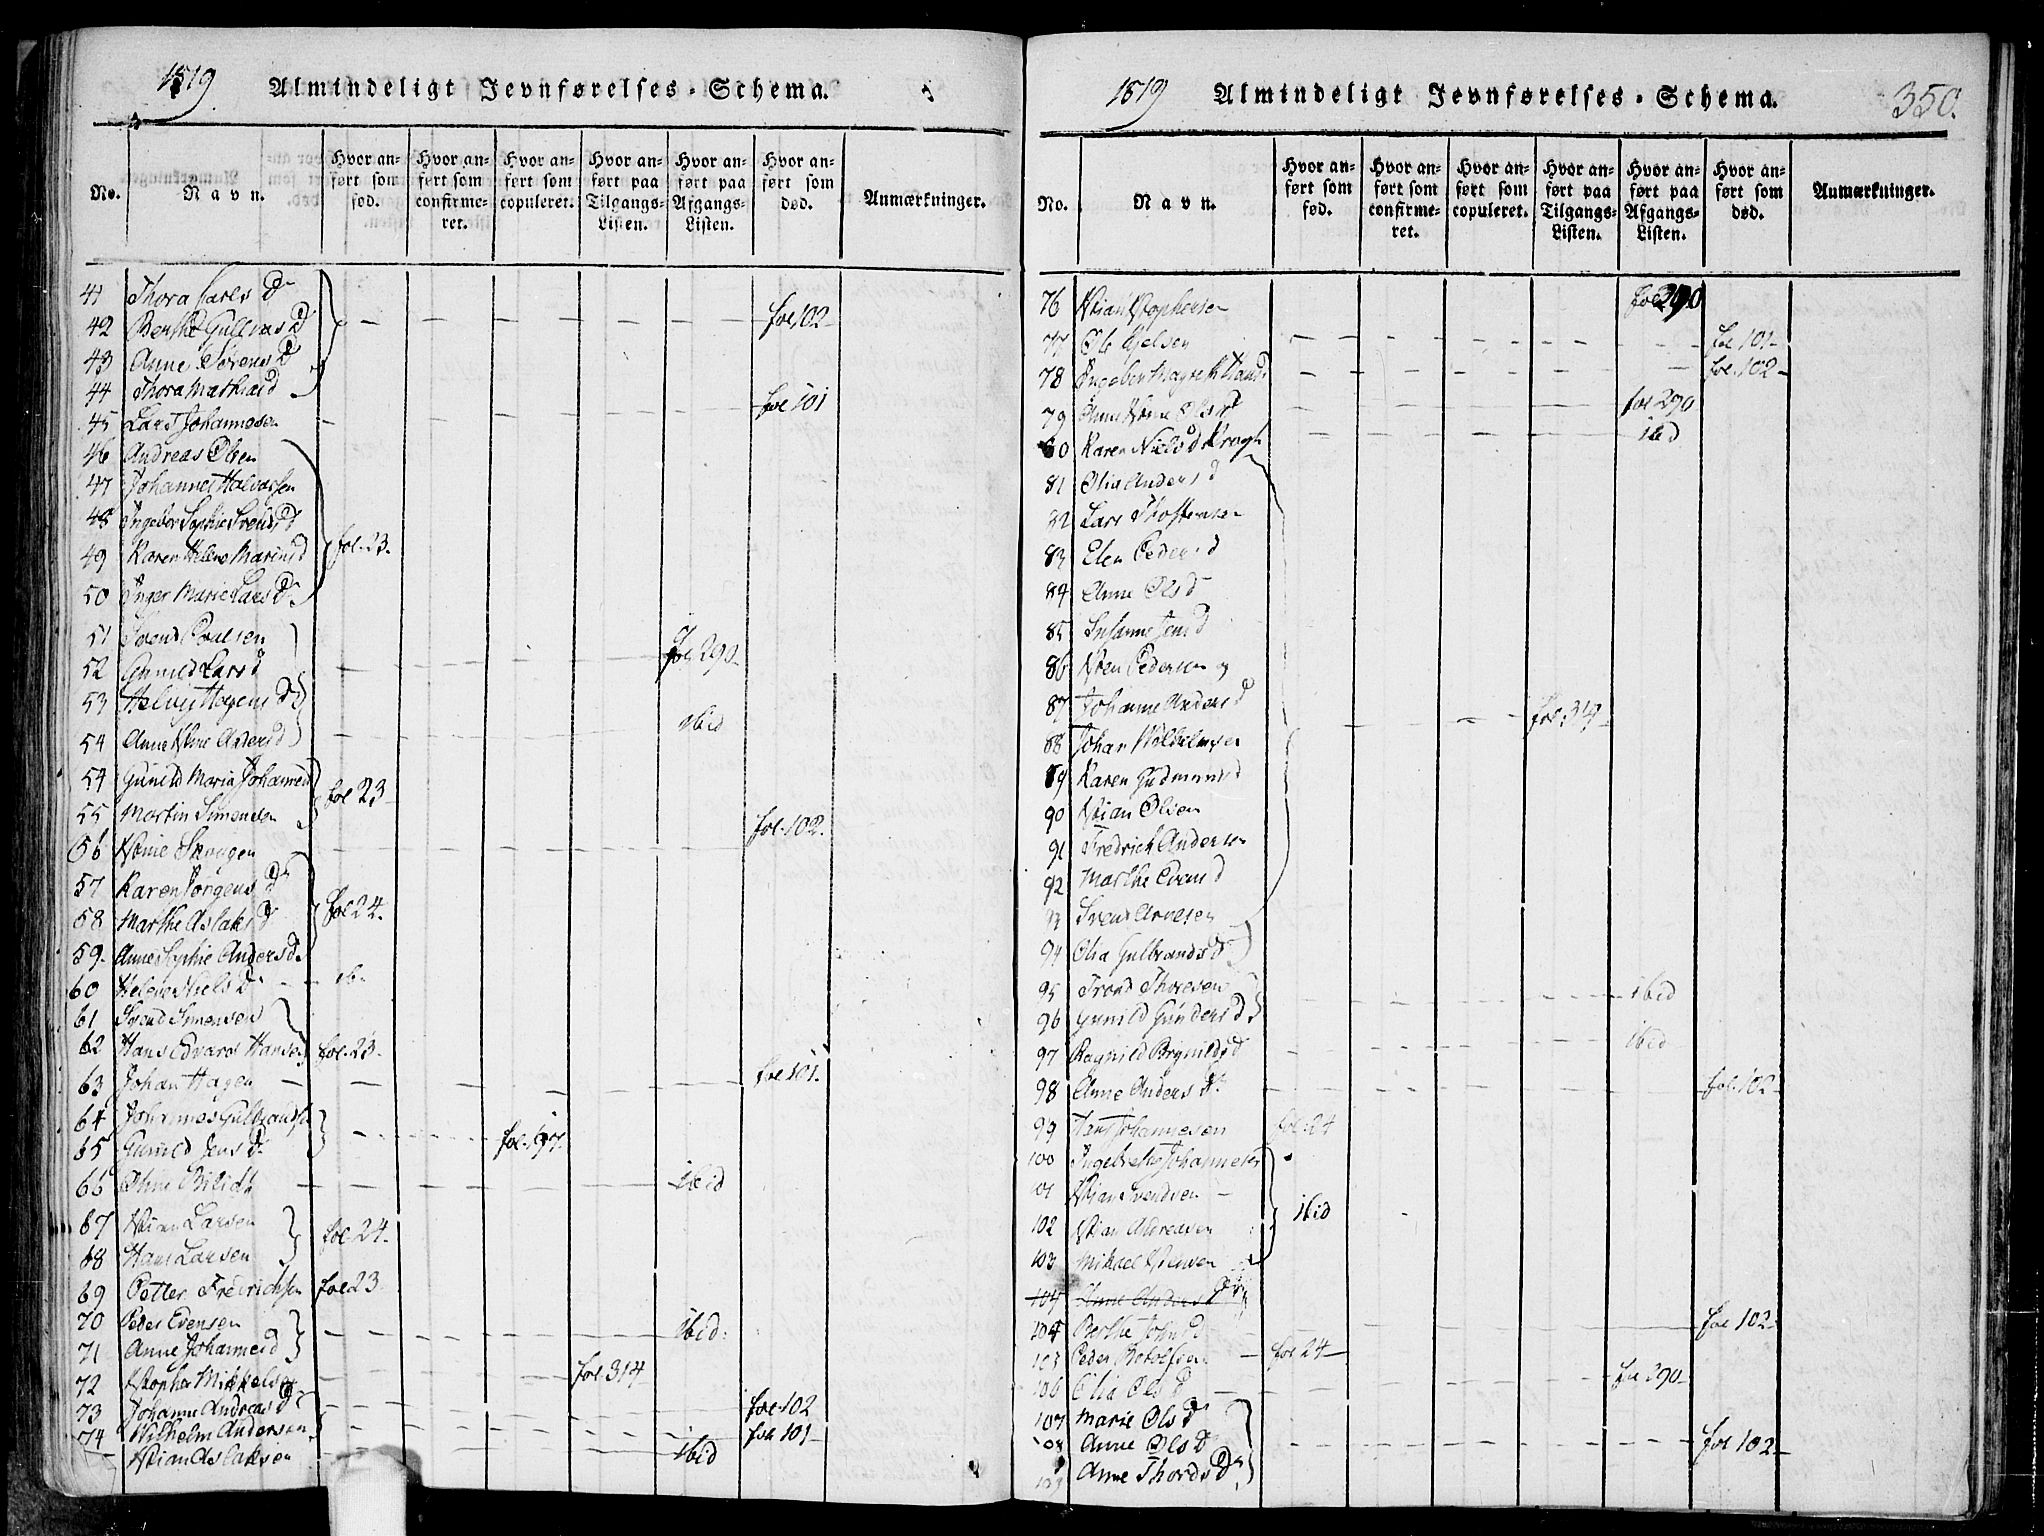 1819. Almindeligt Jevnførelses-Schema.
No.
Navn.
Hvor anført som fød.
Hvor anført som confirmeret.
Hvor anført som copuleret.
Hvor anført paa Tilgangs-Listen.
Hvor anført paa Afgangs-Listen.
Hvor anført som død.
Anmærkninger.
41 Thora Carls D
42 Berthe Gullvas D — — — — — fol 102
43 Anne Sørens D
44 Thora Mathias d
45 Lars Johannesen — — — — — fol 101
46 Andreas Olsen
47 Johannes Halvorsen
48 Ingebor Sophie Svends d
49 Karen Helene Marius d fol. 23.
50 Inger Marie Lars D.
51 Svend Poulsen
52 Gunild Lars d — — — — fol 290.
53 Helvig Hagens D
54 Anne Stine Anders d — — — — ibid
54 Gunild Maria Johannes d fol 23
55 Martin Simensen
56 Stine Skougen — — — — — fol. 102.
57 Karen Jørgens D
58 Marthe Aslaks D fol 24.
59. Anne Sophie Anders d.
60 Helene Niels D. — — ib.
61 Svend Simensen
62 Hans Edvard Hansen fol. 23.
63 Johan Hagen — — — — — — fol 101.
64 Johannes Gulbrandsen
65 Gunild Jens D. — — fol. 197.
66 Ohne Bilidt — — — — — ibid
67 Xtian Larsen
68 Hans Larsen fol 24.
69 Petter Fredrichsen fol 23
70 Peder Evensen
71 Anne Johannes d — — — — ibid.
72 Xstopher Mikkelsen — — — fol. 314
73 Johanne Andreas D — — — — — fol 102
74 Wilhelm Andersen — — — — — fol 101
— Xtian Aslaksen — — — — ibid
1819 Almindeligt Jevnførelses-Schema. 350.
No.
Navn.
Hvor anført som fød.
Hvor anført som confirmeret.
Hvor anført som copuleret.
Hvor anført paa Tilgangs-Listen.
Hvor anført paa Afgangs-Listen.
Hvor anført som død.
Anmærkninger.
76 Xtian Xstophersen fol 290
77 Ole — — — — — fol 101
78 Ingebor Magrethe — — — — — fol. 102
79 Anne Stine Ols d — — — — fol 290
80 Karen Niels d Krogh — — — — ibid
81 Olia Anders d
82 Lars Thostensen
83 Elen Peders d
84 Anne Ols d
85 Susanne Jens d
86 Sten Pedersen og
87 Johanne Anders d — — — fol. 314
88 Johan Wilhelmsen
89 Karen Gudmunds d
90 Xtian Olsen
91 Fredrich Andersen
92 Marthe Evens d
93 Svend Arvesen
94 Olia Gulbrands D
95 Trond Thoresen — — — — ibid
96 Gunild Gunders D
97 Ragnild Brynilds d — — — — ibid
98 Anne Anders D. — — — — — fol. 102
99 Hans Johannesen fol. 24
100 Ingebrethe Johannesen
101 Xtian Svendsen — ibid
102 Xtian Andreasen
103 Mikael
104 Anne Anders D
104 Berthe Johns d — — — — — fol 102
103 Peder — fol 24
106 Olia Ols d — — — — fol 290
107 Marie Ols D
108 Anne Ols d — — — — — fol 102
109 Anne Thords D